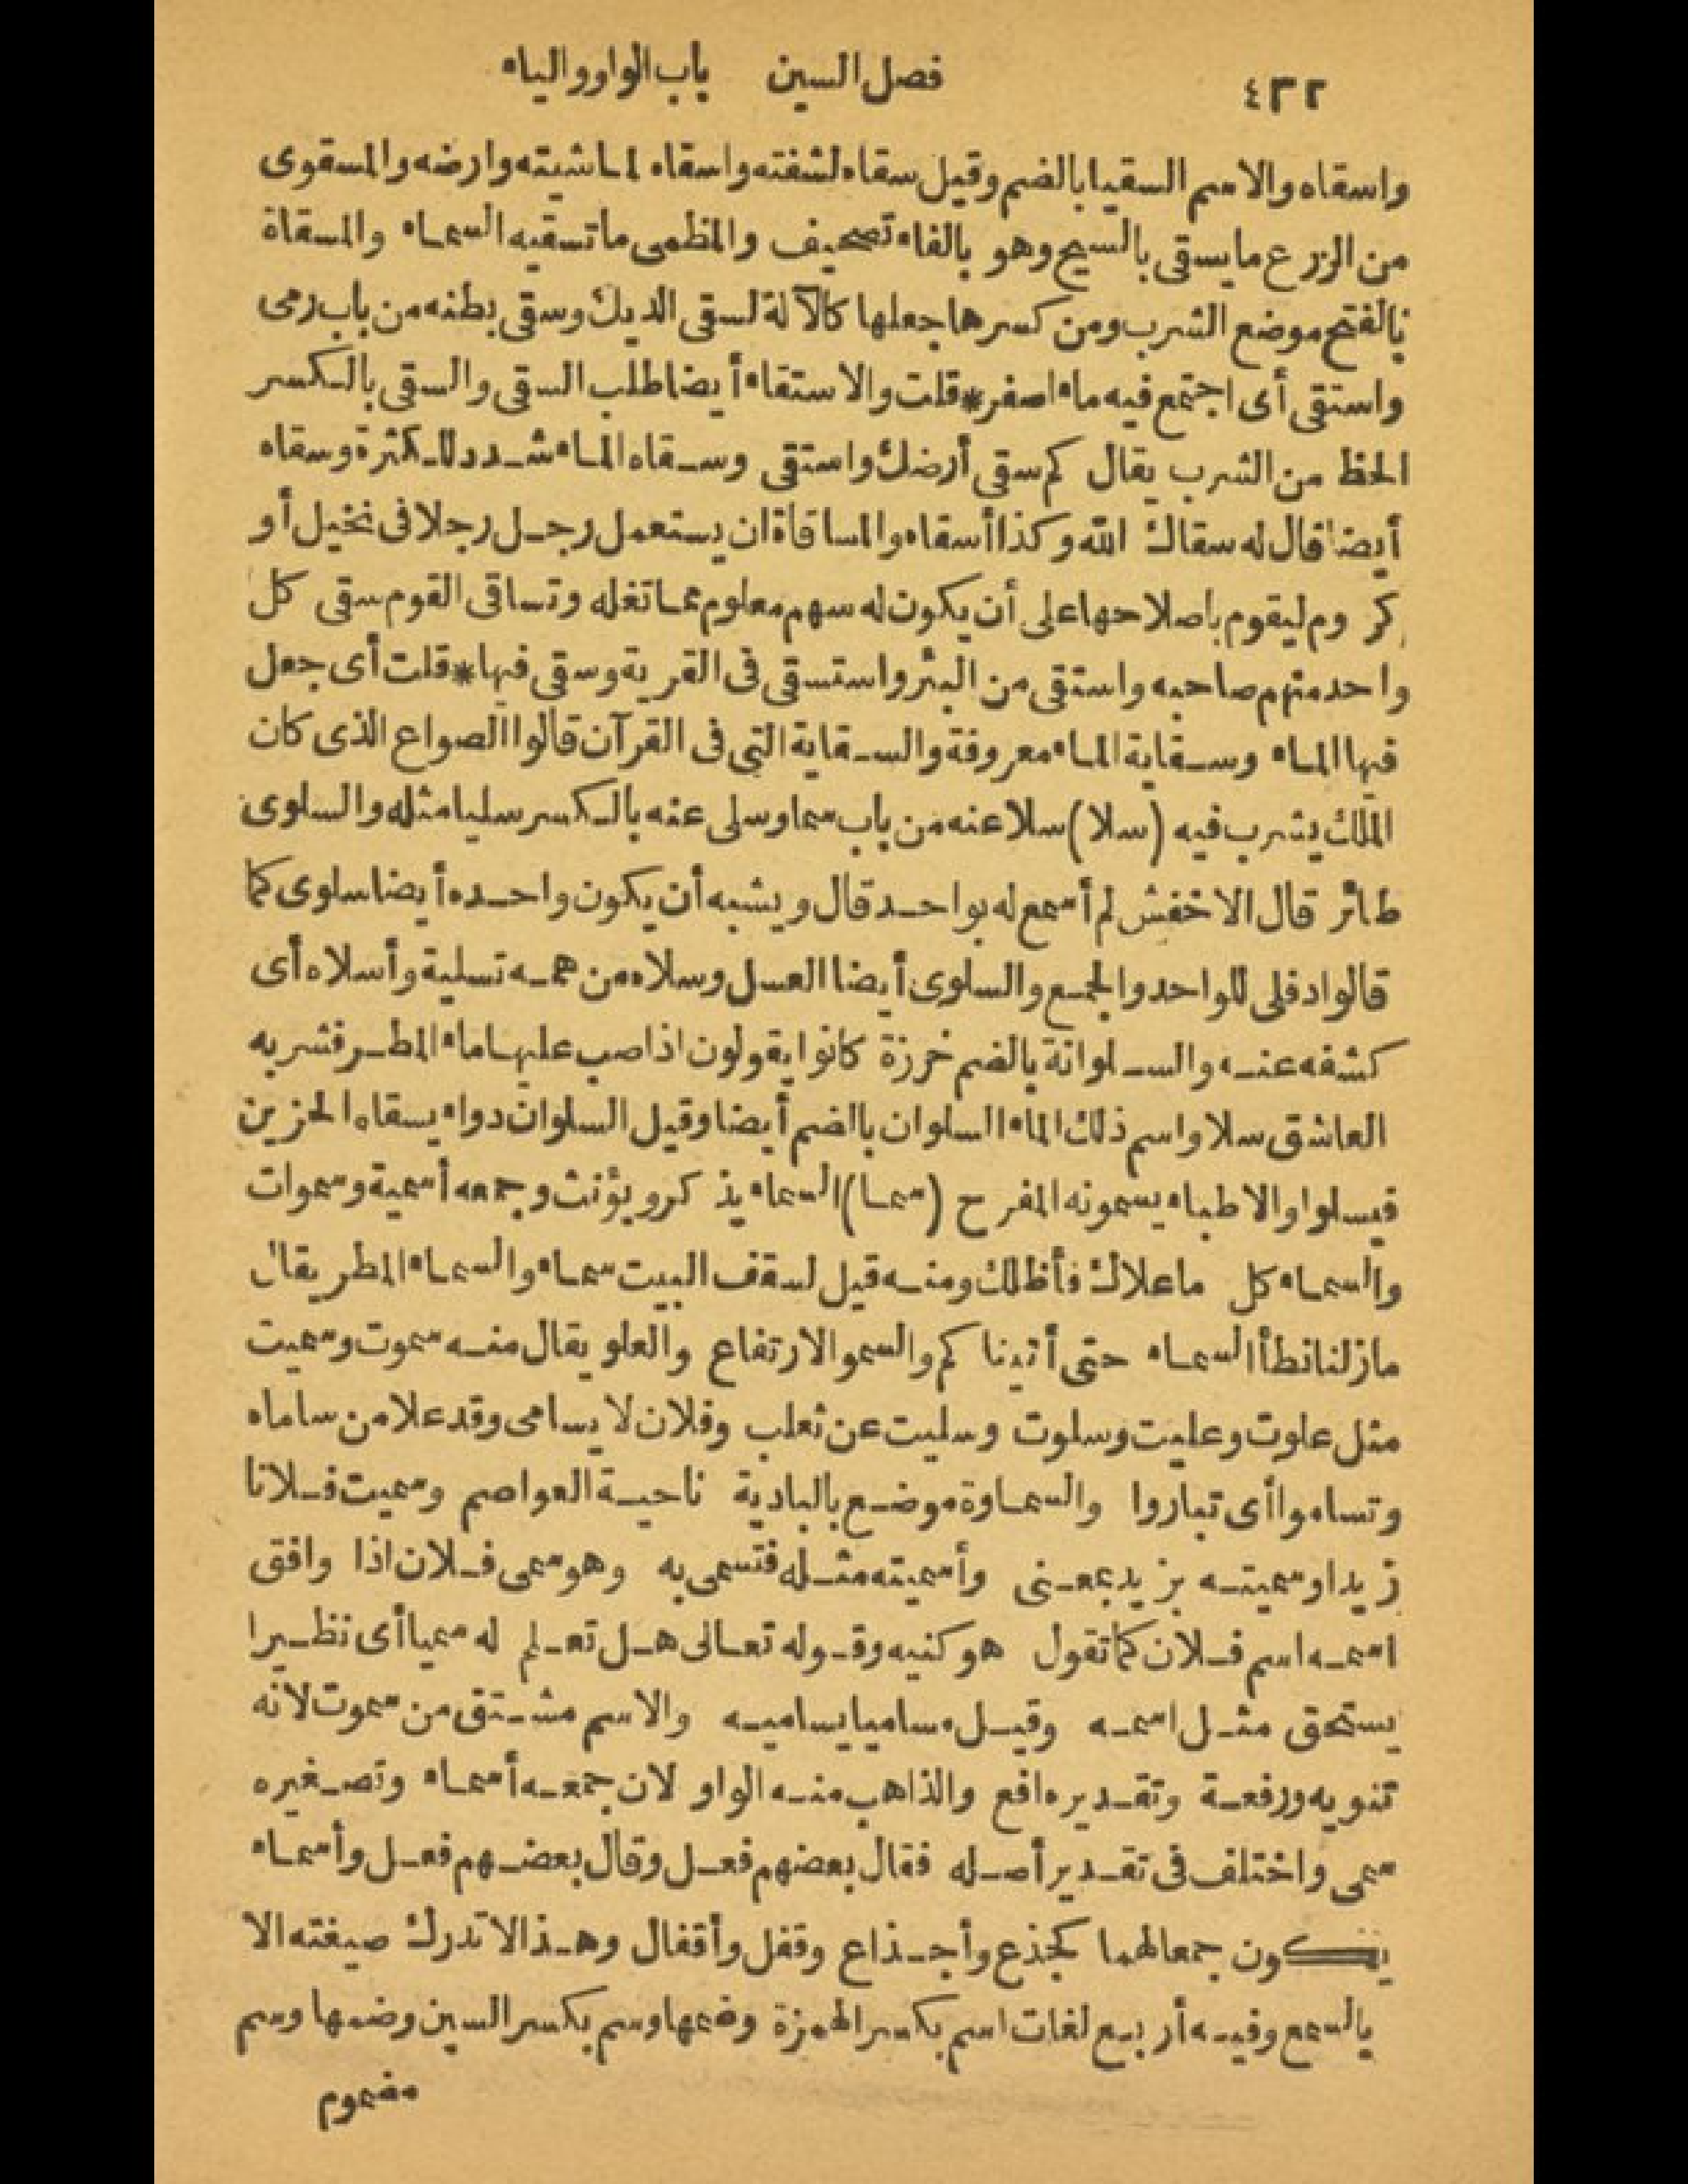 ٤٣٢ فصل السين باب الواو والياء
واسقاه والاسم السقيا بالضم وقيل سقاه لشفته واسقاه لماشيته وارضه والمسقوى
من الزرع ما يسقى بالسيح وهو بالفاء تصحيف والمظمى ما تسقيه السماء والمسقاة
بالفتح موضع الشرب ومن كسرها جعلها كالآلة لسقى الديك وسقى بطنه من باب رمى
واستقى أى اجتمع فيه ماء اصفر * قلت والاستقاء أيضا طلب السقى والسقى بالكسر
الحظ من الشرب يقال كم سقى أرضك واستقى وسقاه الماء شدد للكثرة وسقاه
أيضا قال له سقاك الله وكذا أسقاه والمساقاة ان يستعمل رجل رجلا فى نخيل أو
كروم ليقوم باصلاحها على أن يكون له سهم معلوم مما تغله وتساقى القوم سقى كل
واحد منهم صاحبه واستقى من البئر واستسقى فى القربة وسقى فيها * قلت أى جعل
فيها الماء وسقاية الماء معروفة والسقاية التى فى القرآن قالوا الصواع الذى كان
الملك يشرب فيه (سلا) سلا عنه من باب سما وسلى عنه بالكسر سليا مثله والسلوى
طائر قال الاخفش لم أسمع له بواحد قال ويشبه أن يكون واحده أيضا سلوى كما
قالوا دفلى للواحد والجمع والسلوى أيضا العسل وسلاه من همه تسلية وأسلاه أى
كشفه عنه والسلوانة بالضم خرزة كانوا يقولون اذا صب عليها ماء المطر فشربه
العاشق سلا واسم ذلك الماء السلوان بالضم أيضا وقيل السلوان دواء يسقاه الحزين
فيسلوا والاطباء يسمونه المفرح (سما) السماء يذكر ويؤنث وجمعه أسمية وسموات
والسماء كل ما علاك فأظلك ومنه قيل لسقف البيت سماء والسماء المطر يقال
مازلنا نطأ السماء حتى أتيناكم والسمو الارتفاع والعلو يقال منه سموت وسميت
مثل علوت وعليت وسلوت وسليت عن ثعلب وفلان لا يسامى وقد علا من ساماه
وتساموا أى تباروا والسماوة موضع بالبادية ناحية العواصم وسميت فلانا
زيدا وسميته بزيد بمعنى وأسميته مثله فتسمى به وهو سمى فلان اذا وافق
اسمه اسم فلان كما تقول هو كنيه وقوله تعالى هل تعلم له سميا أى نظيرا
يستحق مثل اسمه وقيل مساميا يساميه والاسم مشتق من سموت لانه
تنويه ورفعة وتقديره افع والذاهب منه الواو لان جمعه أسماء وتصغيره
سمى واختلف فى تقدير أصله فقال بعضهم فعل وقال بعضهم فعل وأسماء
يكون جمعا لهما كجذع وأجذاع وقفل وأقفال وهذا لا تدرك صيغته الا
بالسمع وفيه أربع لغات اسم بكسر الهمزة وضمها وسم بكسر السين وضمها وسم
مضموم